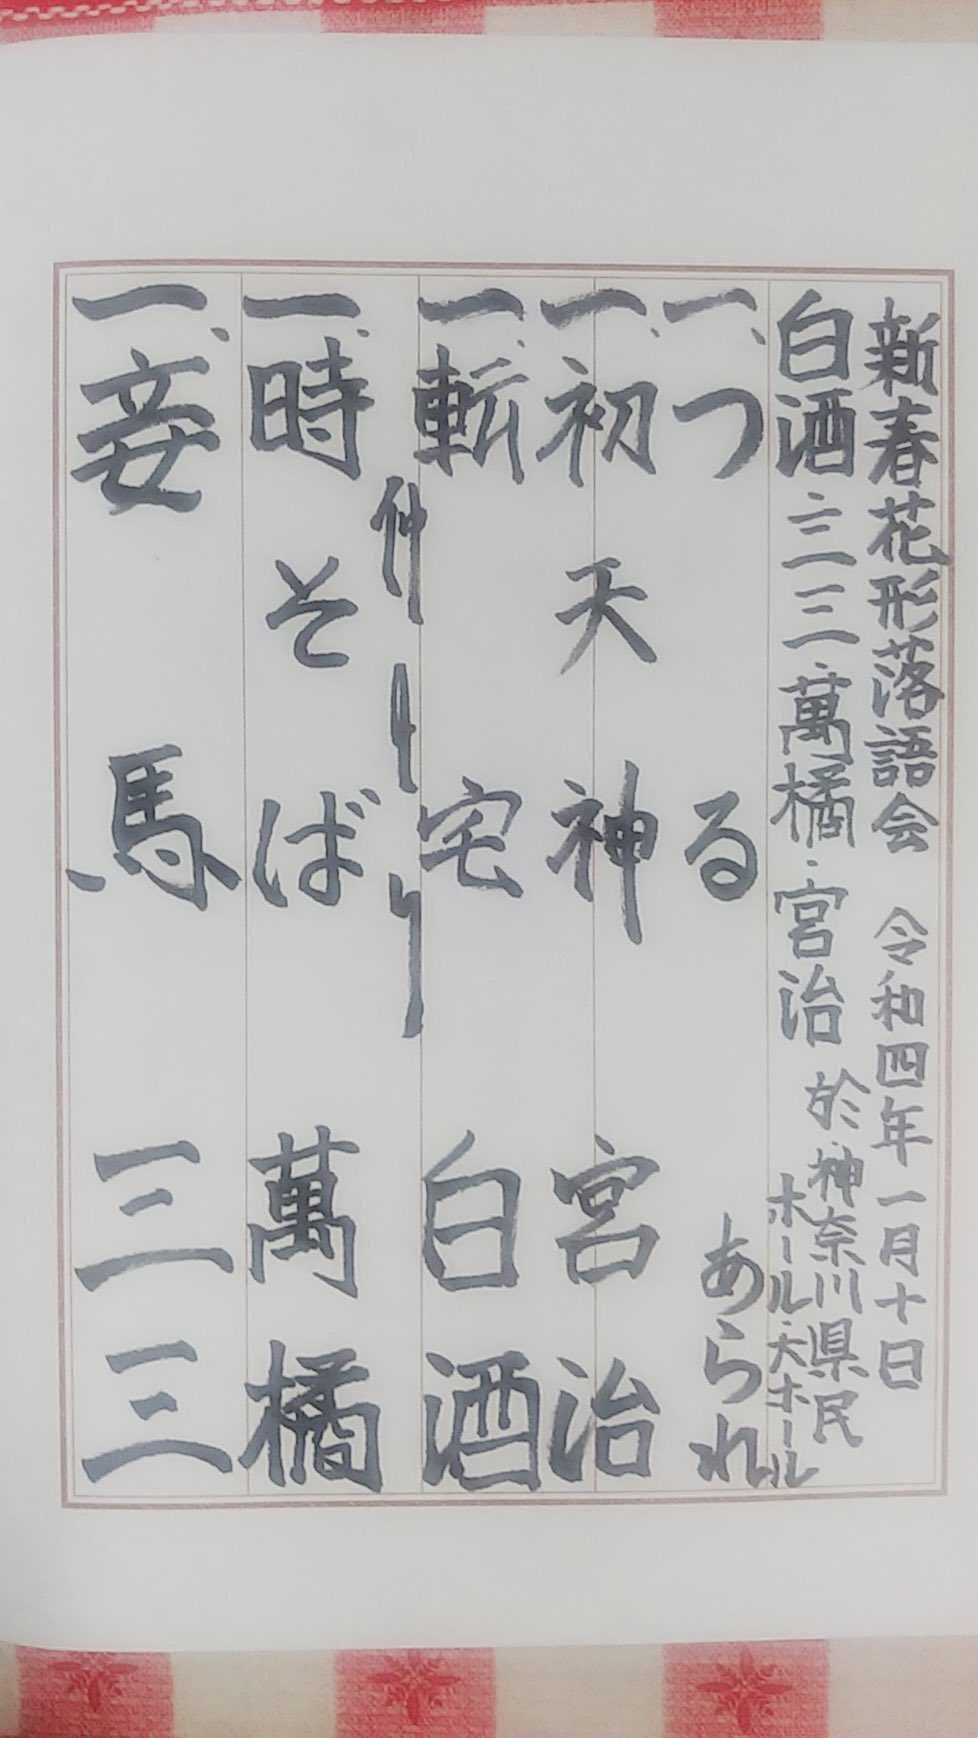 新春花形落語会 令和四年一月十日
白酒・三三・萬橘・宮治 於・神奈川県民
ホール・大ホール
一、つる あられ
一、初天神 宮治
一、転宅 白酒
仲入り
一、時そば 萬橘
一、妾馬 三三